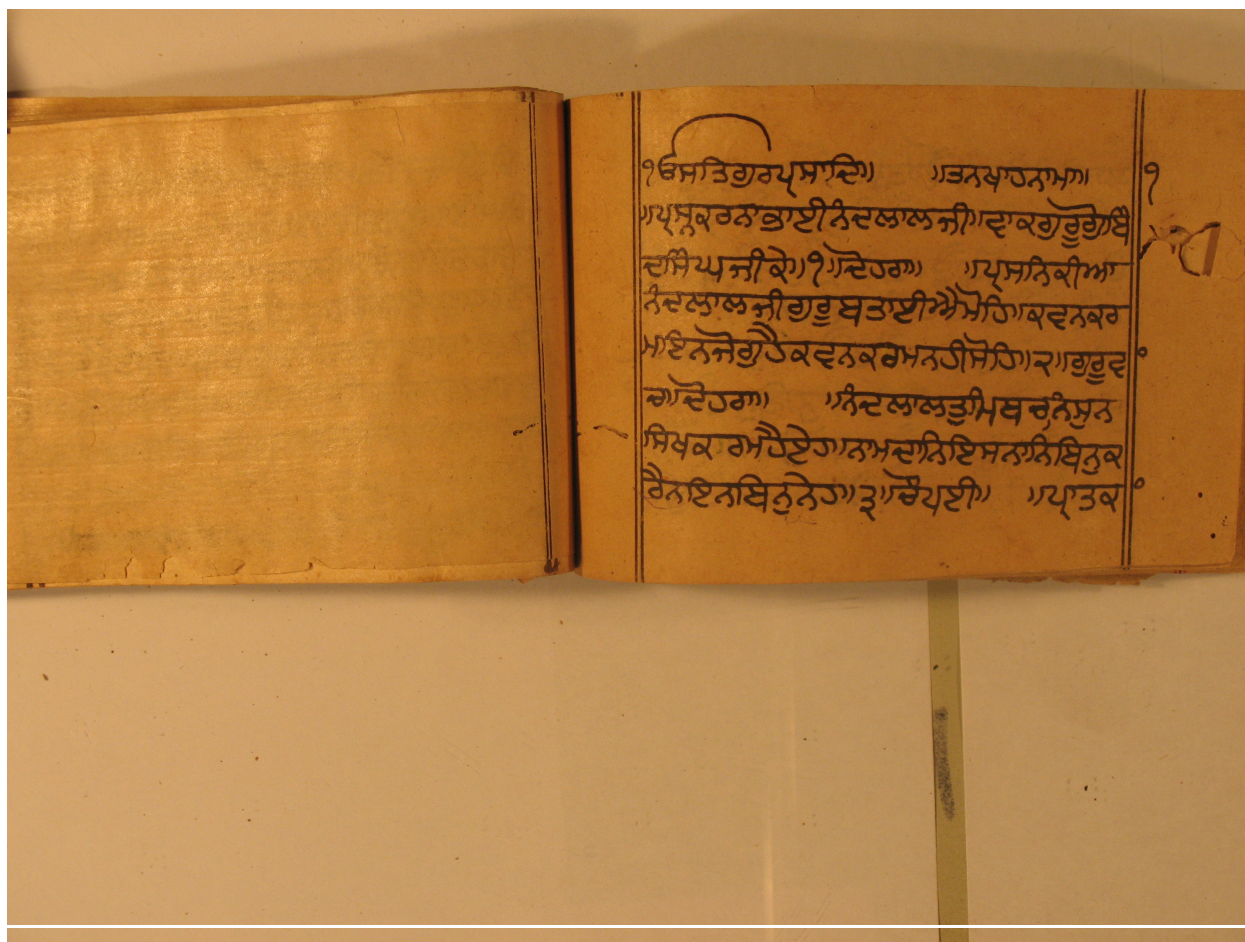 ੴਸਤਿਗੁਰਪ੍ਰਸਾਦਿ॥ ॥ਤਨਖਾਹਨਾਮਾ॥ ੧
॥ਪ੍ਰਸ੍ਨਕਰਨਾਭਾਈਨੰਦਲਾਲਜੀ॥ਵਾਕਗੁਰੂਗੋੁਬਿੰ
ਦਸਿੰਘਜੀਕੇ॥੧॥ਦੋਹਰਾ॥ ॥ਪ੍ਰਸਨਿਕੀਆ
ਨੰਦਲਾਲਜੀਗੁਰੂਬਤਾਈਐਮੋਹਿ॥ਕਵਨਕਰ
ਮਾਇਨਜੋਗੁਹੈਕਵਨਕਰਮਨਹੀਸੋਹਿ॥੨॥ਗੁਰੂਵ
ਚ॥ਦੋਹਰਾ॥ ॥ਨੰਦਲਾਲਤੁਮਿਬਚਨੰਸੁਨ
ਸਿਖਕਾਰਮਹੈਏਹ॥ਨਾਮਦਾਨਿਇਸਨਾਨਿਬਿਨੁਕ
ਰੈਨਾਇਨਬਿਨੁਨੇਹ॥੩॥ਚੌਪਈ॥ ॥ਪ੍ਰਾਤਕ